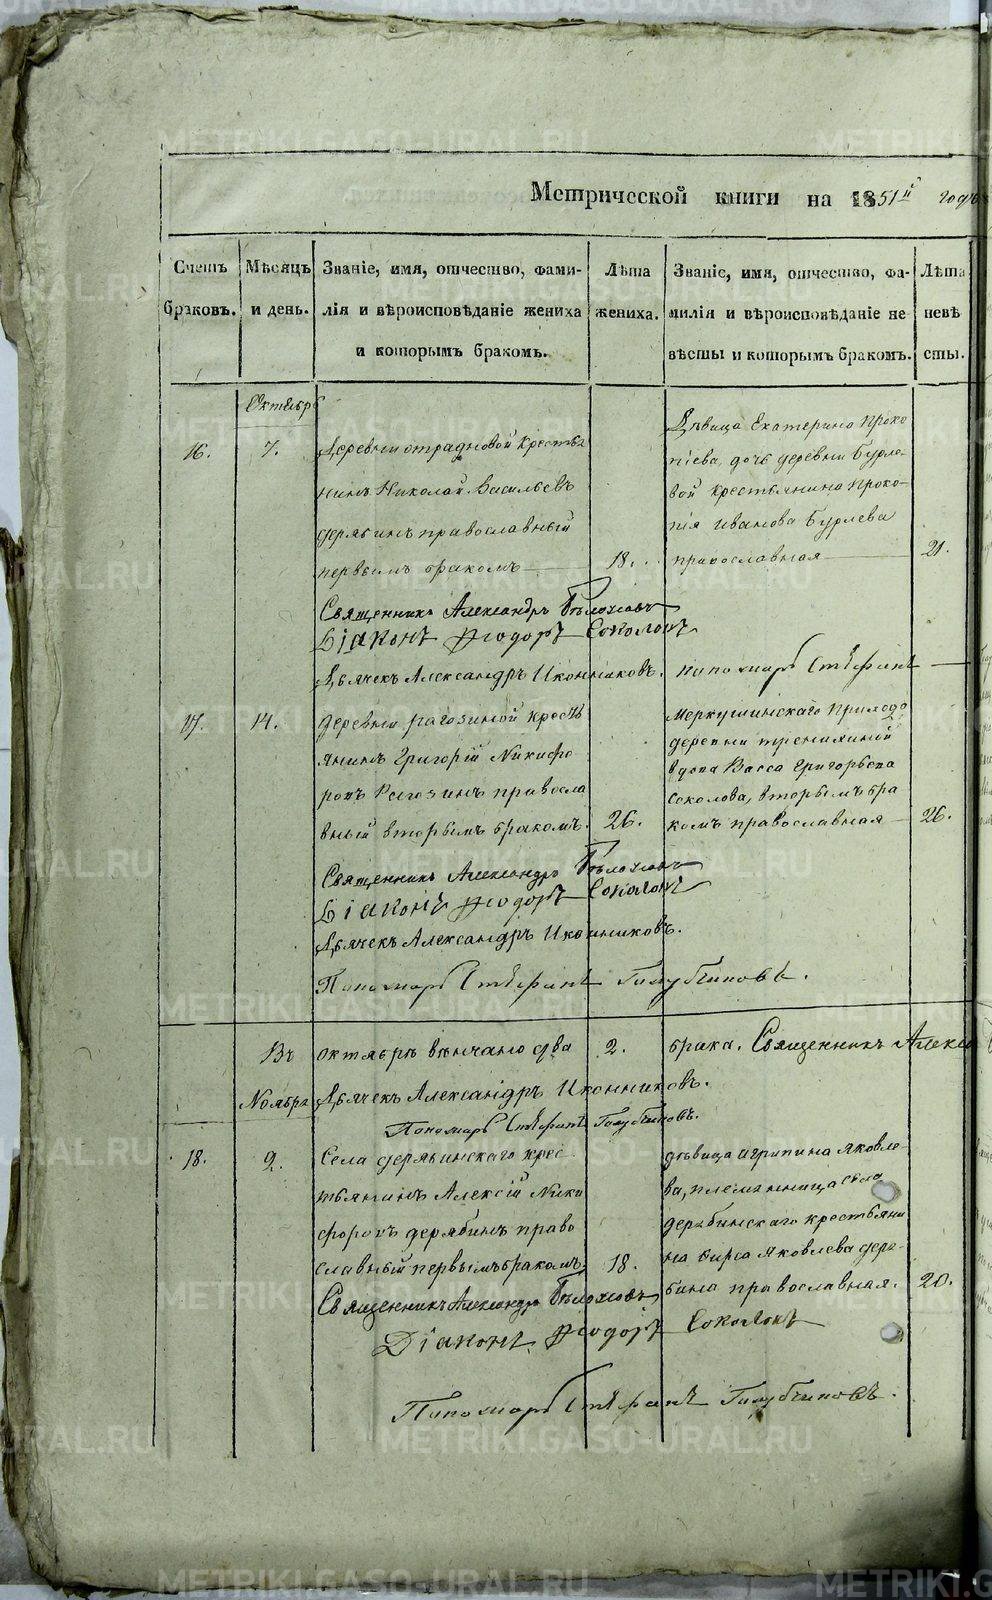 Метрической книги на 1851й годъ
Счетъ браковъ.
Мѣсяцъ и день.
Званіе, имя, отчество, фами-
лія и вѣроисповѣданіе жениха
и которымъ бракомъ.
Лѣта
жениха.
Званіе, имя, отчество, фа-
милія и вѣроисповѣданіе не
вѣсты и которымъ бракомъ.
Лѣта
невѣ
сты.
Октябрь
16.
7.
Деревни отрадновой крестья
нинъ Николай Васильевъ
дерябинъ православный
первымъ бракомъ
18.
Дѣвица Екатерина Проко
піева, дочь деревни Бурле-
вой крестьянина Проко-
пія Иванова Бурлева
православная
21.
Священникъ Александръ
Діаконъ Ѳеодоръ Соколовъ
Дьячекъ Александръ Иконниковъ.
пономарь Стефанъ
17.
14.
деревни рагозиной крестъ
янинъ Григорій Никифо
ровъ Рагозинъ правосла
вный вторымъ бракомъ.
26.
Меркушинскаго Прихода
деревни
вдова Васса Григорьева
Соколова, вторымъ бра
комъ православная
26.
Священникъ Александръ
Діаконъ Ѳеодоръ Соколовъ
Дьячекъ Александръ Иконниковъ.
Пономарь Стефанъ Голубчиковъ.
Въ октябрѣ вѣнчано два 2. брака. Священникъ Алекса
Ноябрь
Дьячекъ Александръ Иконниковъ.
Пономарь Стефанъ Голубчиковъ.
18.
9.
Села дерябинскаго крес-
тьянинъ Алексій Ники
форовъ дерябинъ право
славный первымъ бракомъ
18.
дѣвица агрипина яковле-
ва, племянница села
дерябинскаго крестьяни
на яковлева деря-
бина православная.
20.
Священникъ Александръ
Діаконъ Ѳеодоръ Соколовъ
Пономарь Стефанъ Голубчиковъ.
METRIKI.GASO-URAL.RU